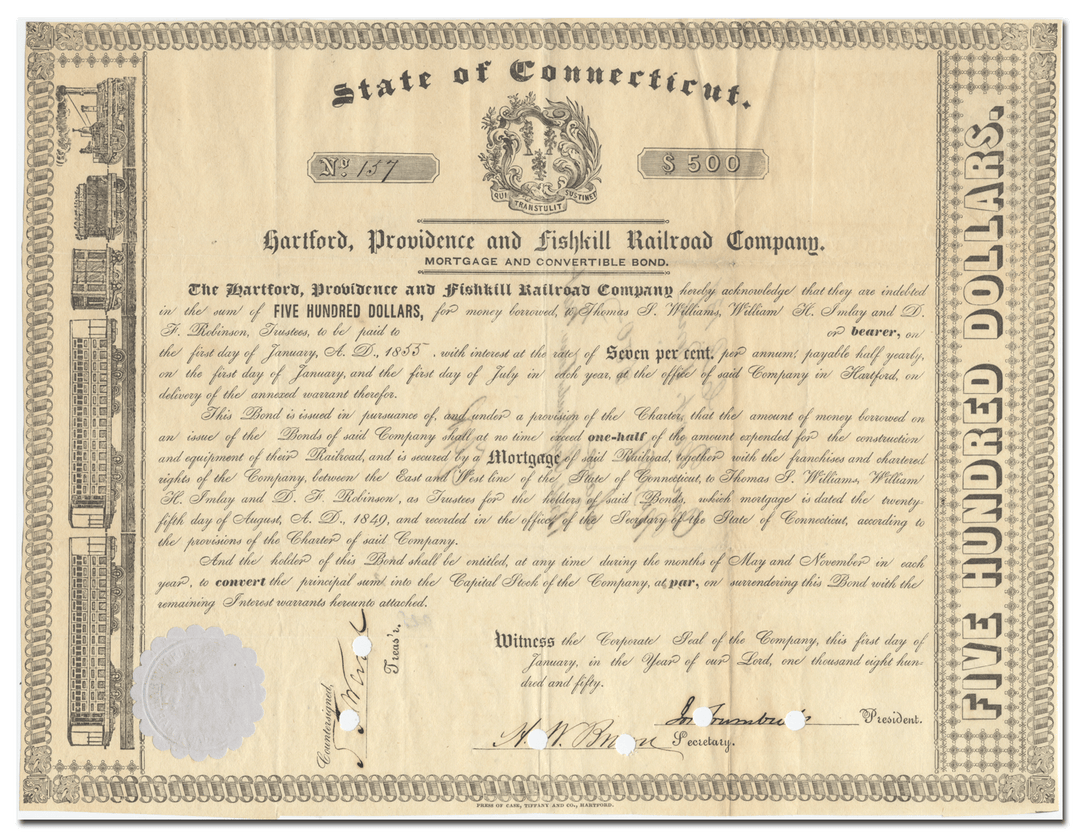 State of Connecticut.
No. 157
$ 500
QUI TRANSTULIT SUSTINET
Hartford, Providence and Fishkill Railroad Company.
MORTGAGE AND CONVERTIBLE BOND.
The Hartford, Providence and Fishkill Railroad Company hereby acknowledge that they are indebted
in the sum of FIVE HUNDRED DOLLARS, for money borrowed, to Thomas S. Williams, William H. Imlay and D.
F. Robinson, Trustees, to be paid to or bearer, on
the first day of January, A. D., 1855, with interest at the rate of Seven per cent. per annum, payable half yearly,
on the first day of January, and the first day of July in each year, at the office of said Company in Hartford, on
delivery of the annexed warrant therefor.
This Bond is issued in pursuance of, and under a provision of the Charter, that the amount of money borrowed on
an issue of the Bonds of said Company shall at no time exceed one-half of the amount expended for the construction
and equipment of their Railroad, and is secured by a Mortgage of said Railroad, together with the franchises and chartered
rights of the Company, between the East and West line of the State of Connecticut, to Thomas S. Williams, William
H. Imlay and D. F. Robinson, as Trustees for the holders of said Bonds, which mortgage is dated the twenty-
fifth day of August, A. D., 1849, and recorded in the office of the Secretary of the State of Connecticut, according to
the provisions of the Charter of said Company.
And the holder of this Bond shall be entitled, at any time during the months of May and November in each
year, to convert the principal sum into the Capital Stock of the Company, at par, on surrendering this Bond with the
remaining Interest warrants hereunto attached.
Witness the Corporate Seal of the Company, this first day of
January, in the Year of our Lord, one thousand eight hun-
dred and fifty.
Countersigned,
Treas'r.
President.
Secretary.
FIVE HUNDRED DOLLARS.
PRESS OF CASE, TIFFANY AND CO., HARTFORD.